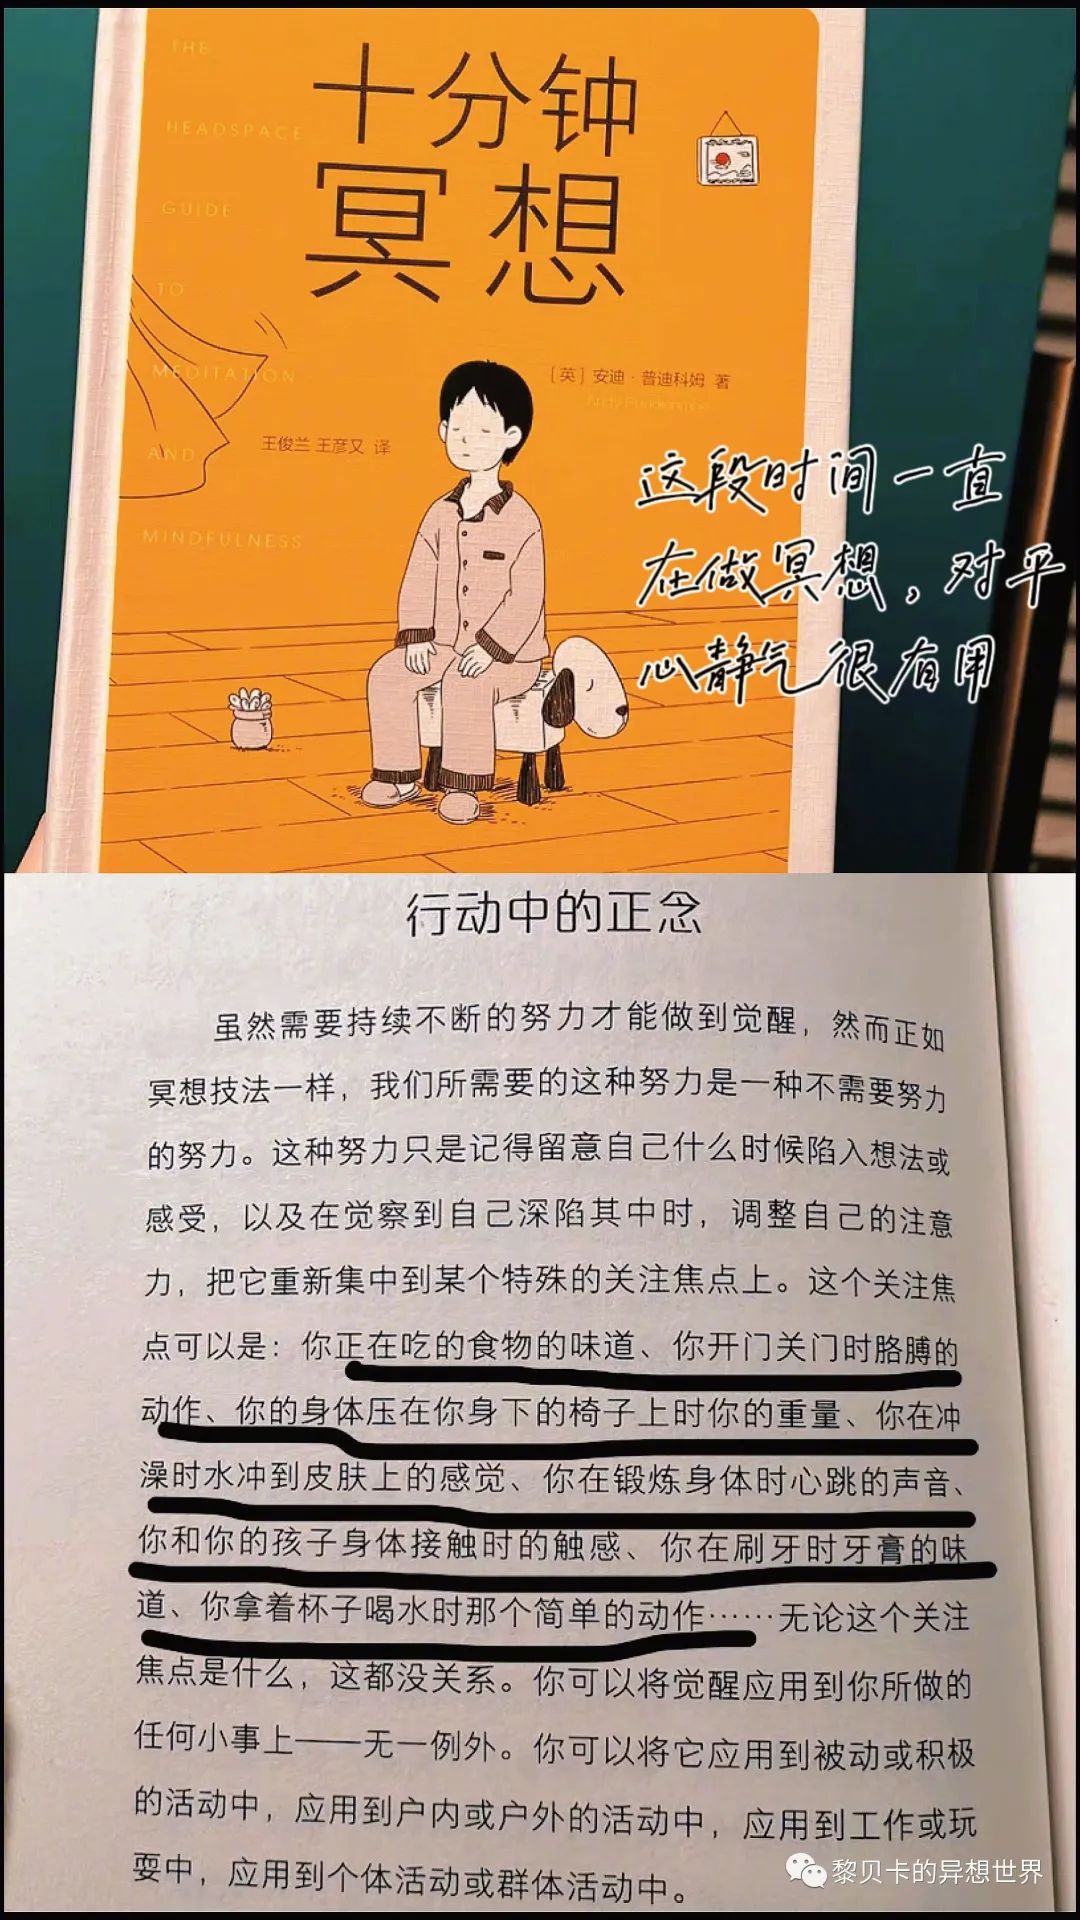 THE
HEADSPACE
GUIDE
TO
MEDITATION
AND
MINDFULNESS
十分钟
冥想
[英] 安迪·普迪科姆 著
王俊兰 王彦又 译
这段时间一直
在做冥想，对平
心静气很有用
行动中的正念
虽然需要持续不断的努力才能做到觉醒，然而正如
冥想技法一样，我们所需要的这种努力是一种不需要努力
的努力。这种努力只是记得留意自己什么时候陷入想法或
感受，以及在觉察到自己深陷其中时，调整自己的注意
力，把它重新集中到某个特殊的关注焦点上。这个关注焦
点可以是：你正在吃的食物的味道、你开门关门时胳膊的
动作、你的身体压在你身下的椅子上时你的重量、你在冲
澡时水冲到皮肤上的感觉、你在锻炼身体时心跳的声音、
你和你的孩子身体接触时的触感、你在刷牙时牙膏的味
道、你拿着杯子喝水时那个简单的动作……无论这个关注
焦点是什么，这都没关系。你可以将觉醒应用到你所做的
任何小事上——无一例外。你可以将它应用到被动或积极
的活动中，应用到户内或户外的活动中，应用到工作或玩
耍中，应用到个体活动或群体活动中。
黎贝卡的异想世界